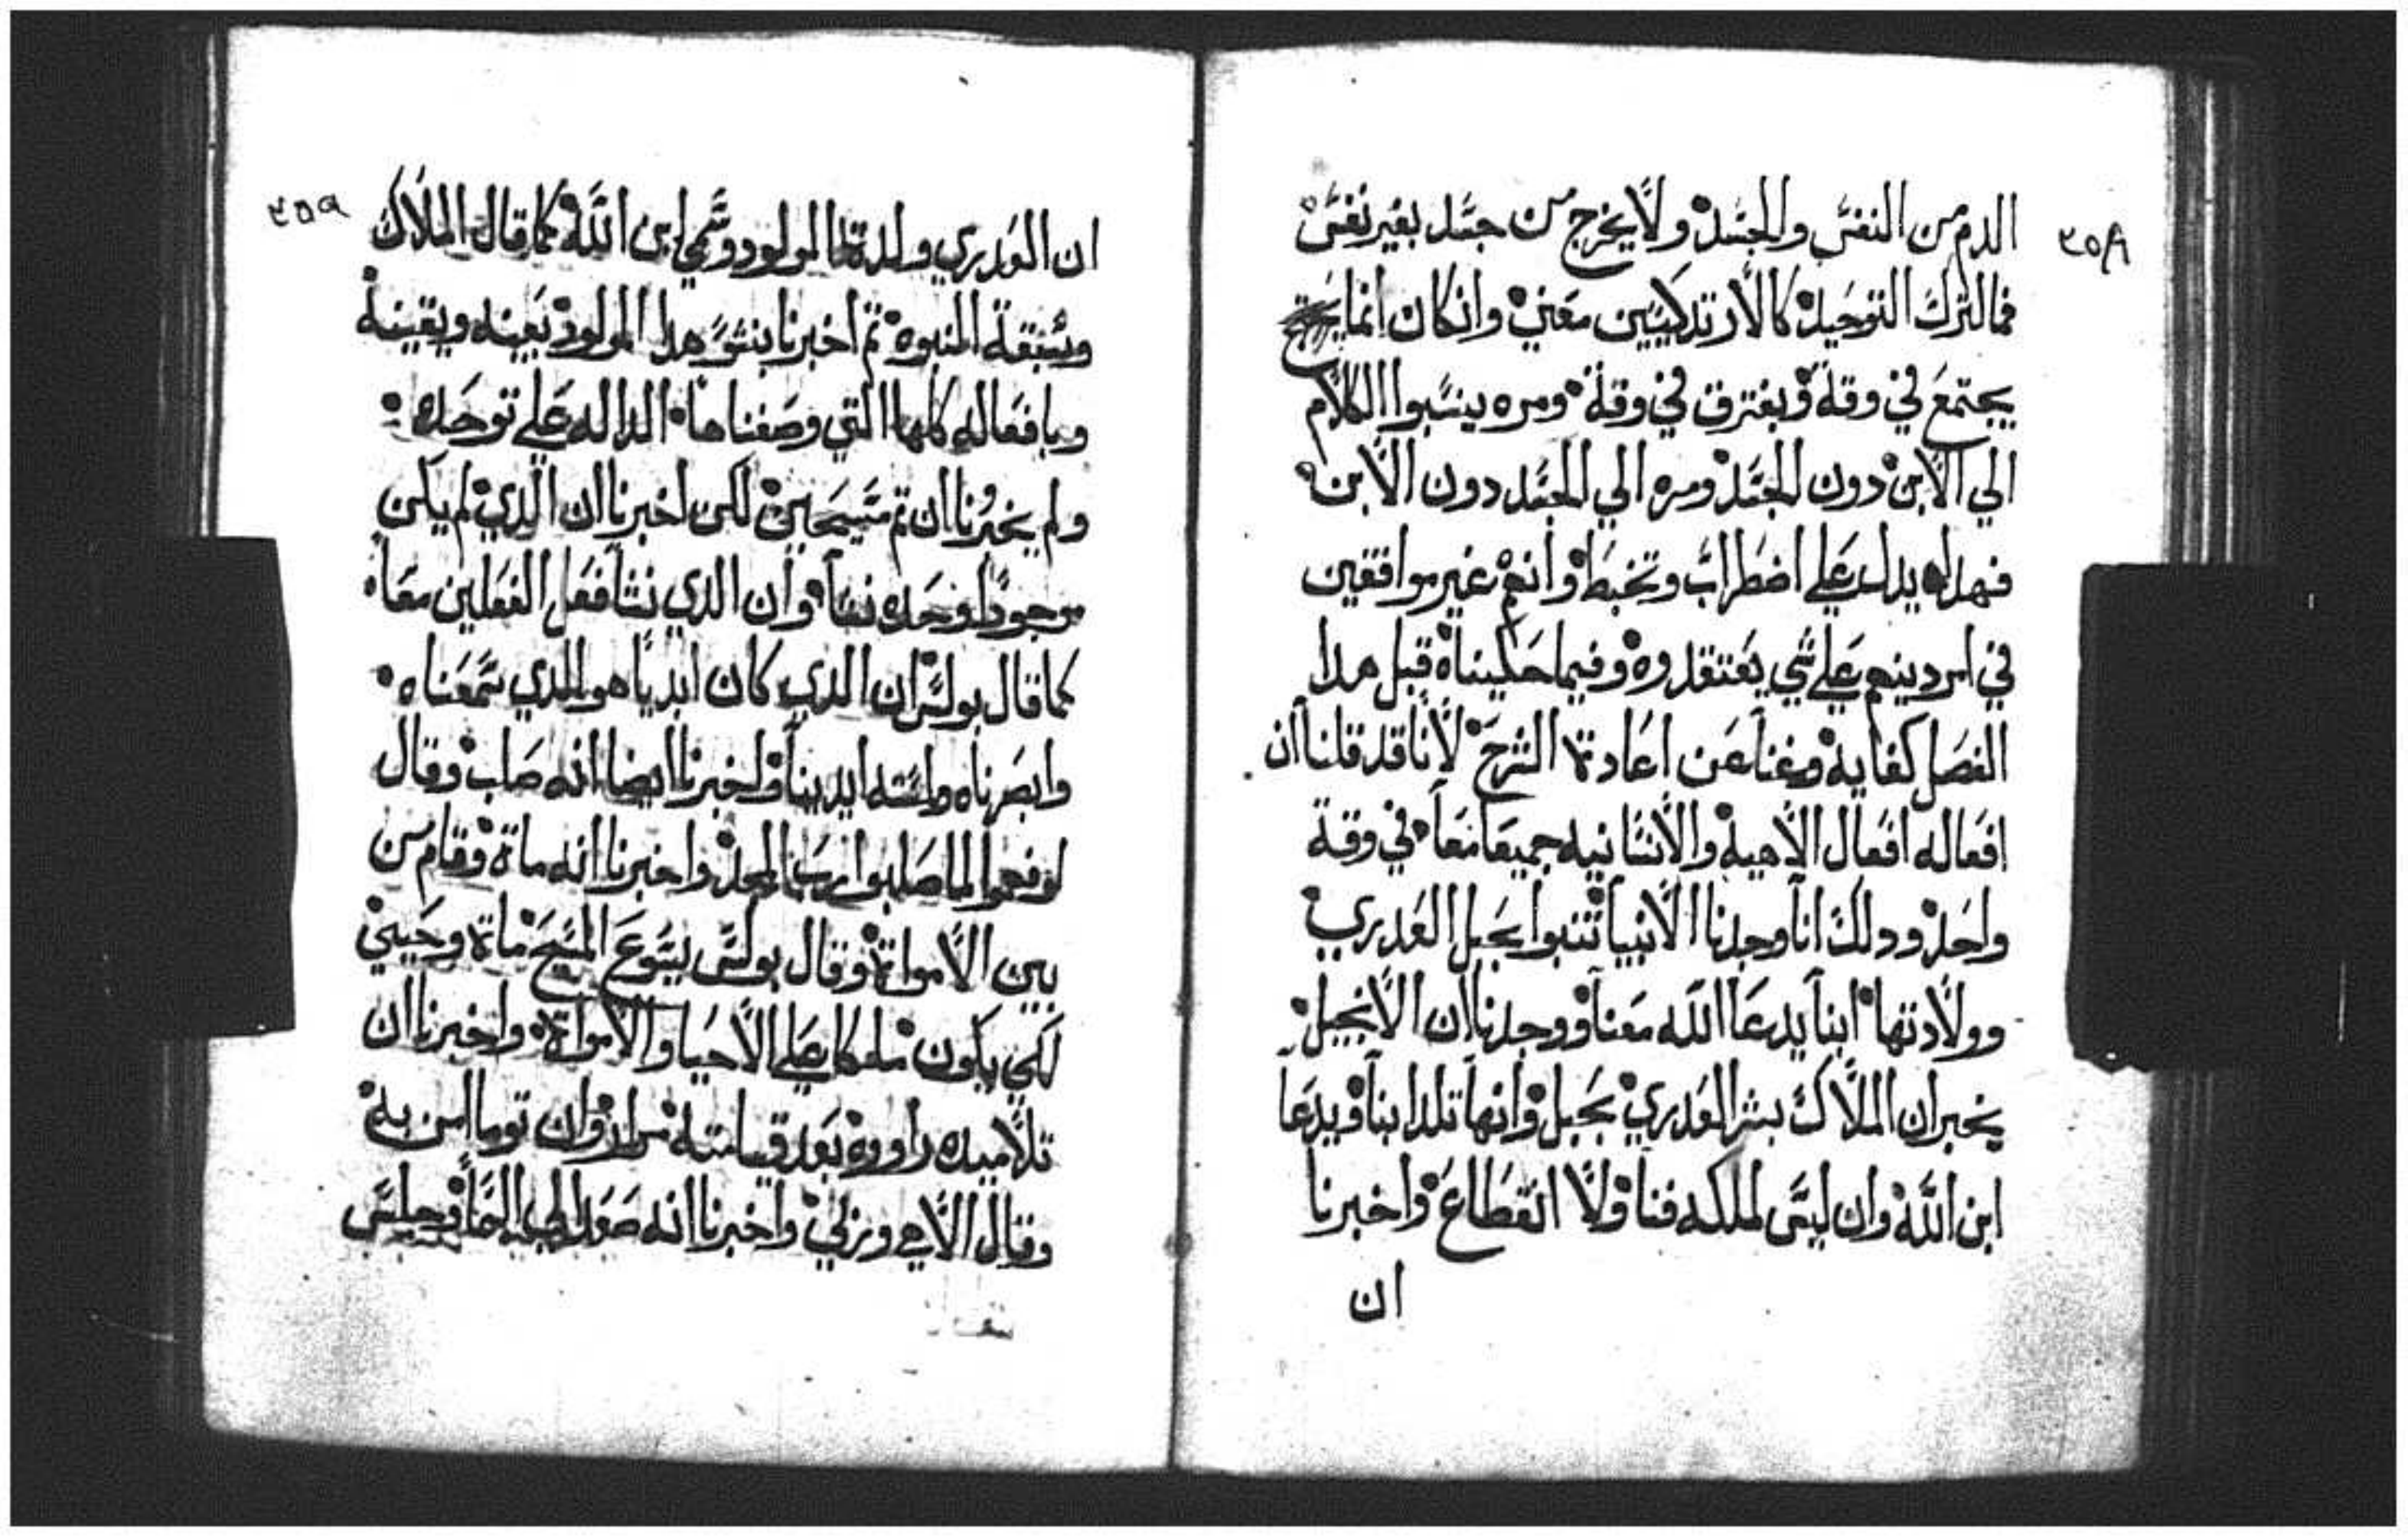 ٣٥٨
الدم من النفس والجسد ولا يخرج من جسد بغير نفس
فما لترك التوحيد كالارتدكسيين معني وان كان انما
يجتمع في وقة ويفترق في وقة ومره ينسبوا الكلام
الي الابن دون الجسد ومره الي الجسد دون الابن
فهداه يدل علي اضطراب وتخبط وانهم غير موافقين
في امر دينهم علي شي يعتقدوه وفيما حكيناه قبل هدا
الفصل كفايه وغنا عن اعادة الشرح لانا قد قلنا ان
افعاله افعال الاهيه والانسانيه جميعا معا في وقة
واحد ودلك انا وجدنا الانبيا تنبوا بحبل العدري
وولادتها ابنا يدعا الله معنا ووجدنا ان الانجيل
يخبر ان الملاك بشر العدري بحبل وانها تلد ابنا ويدعا
ابن الله وان ليس لملكه فنا ولا انقطاع واخبرنا
ان
٣٥٩
ان العدري ولدة المولود وسمي ابن الله كما قال الملاك
وسبقة النبوه تم اخبرنا بنشو هدا المولود بعينه ويقينه
وبافعاله كلها التي وصفناها الداله علي توحده
ولم يخبرنا ان تم مسيحين لكن اخبرنا ان الدي لم يكن
موجودا وحده نشا وان الدي نشا فعل الفعلين معا
كما قال بولس ان الدي كان ابديا هو الدي سمعناه
وابصرناه ولمسته ايدينا واخبرنا ايضا انه صلب وقال
لو فهموا لما صلبوا رب المجد واخبرنا انه ماة وقام من
بين الامواة وقال بولس يسوع المسيح ماة وحيي
لكي يكون ملكا علي الاحيا والامواة واخبرنا ان
تلاميده راووه بعد قيامته مرار وان توما امن به
وقال الاهي وربي واخبرنا انه صعد الي السما وجلس